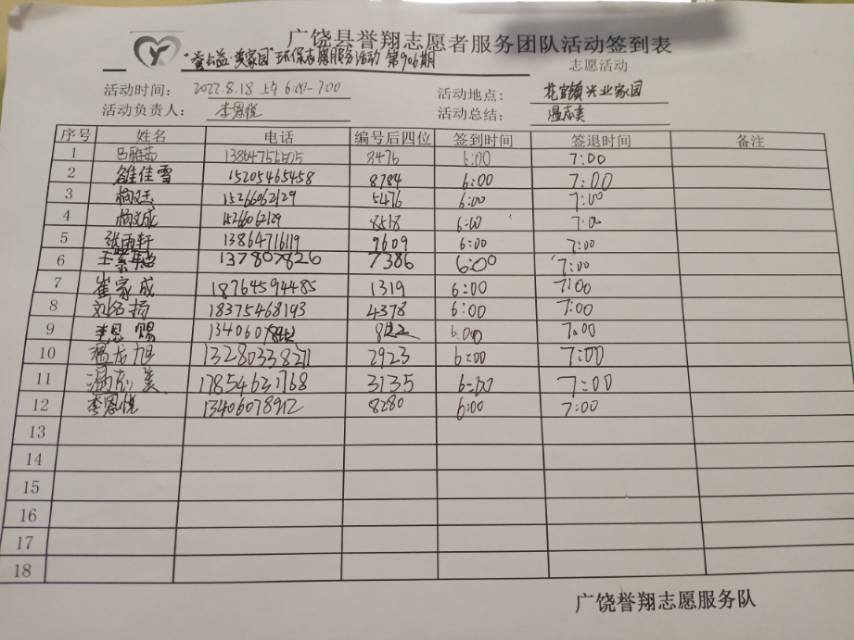 广饶县誉翔志愿者服务团队活动签到表
益·美家园"环保志愿服务活动 第906期 志愿活动
活动时间: 2022.8.18 上午 6:00-7:00 活动地点: 花官镇兴业家园
活动负责人: 李恩悦 活动总结: 温志美
序号 姓名 电话 编号后四位 签到时间 签退时间 备注
1 8476 6:00 7:00
2 佳雪 15205465458 8784 6:00 7:00
3 15266062129 5476 6:00 7:00
4 1526062129 8518 6:00 7:00
5 张雨轩 13864716119 9609 6:00 7:00
6 137807826 7386 6:00 7:00
7 崔家成 18764594485 1319 6:00 7:00
8 刘名扬 18375468193 4378 6:00 7:00
9 李恩赐 6:00 7:00
10 温龙旭 13280338271 2923 6:00 7:00
11 温志美 17854631768 3135 6:00 7:00
12 李恩悦 13406078912 8280 6:00 7:00
13
14
15
16
17
18
广饶誉翔志愿服务队